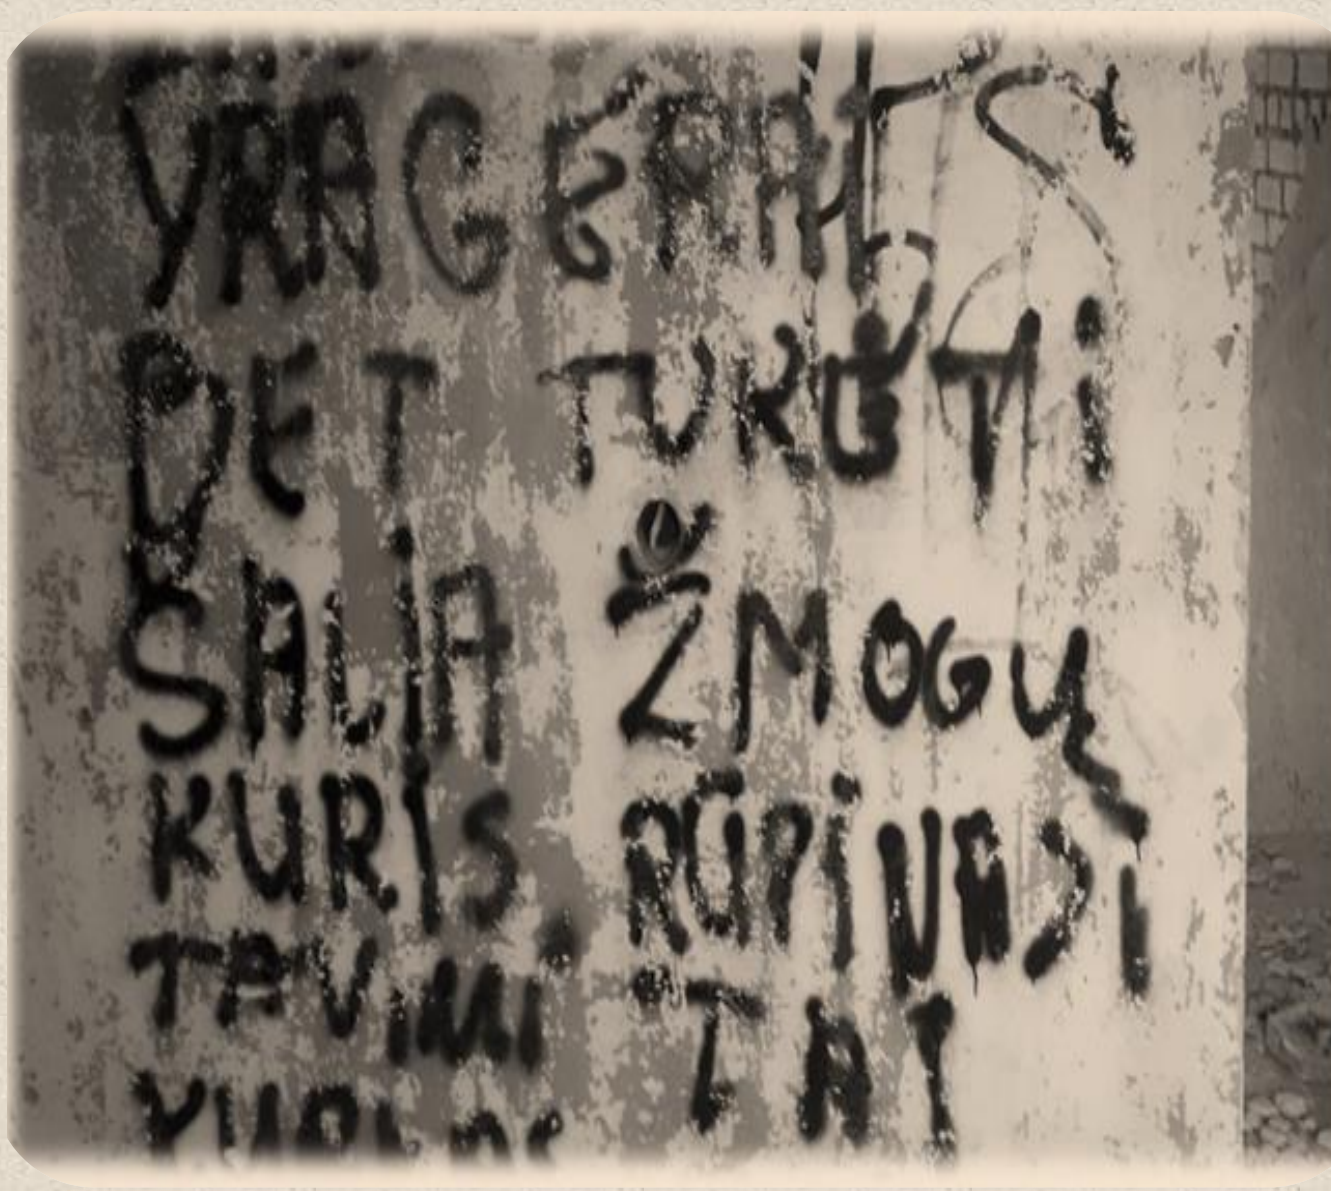 YRA GERAI
BET TURĖTI
SALIA ŽMOGŲ
KURIS RŪPINASI
TAVIMI TAI